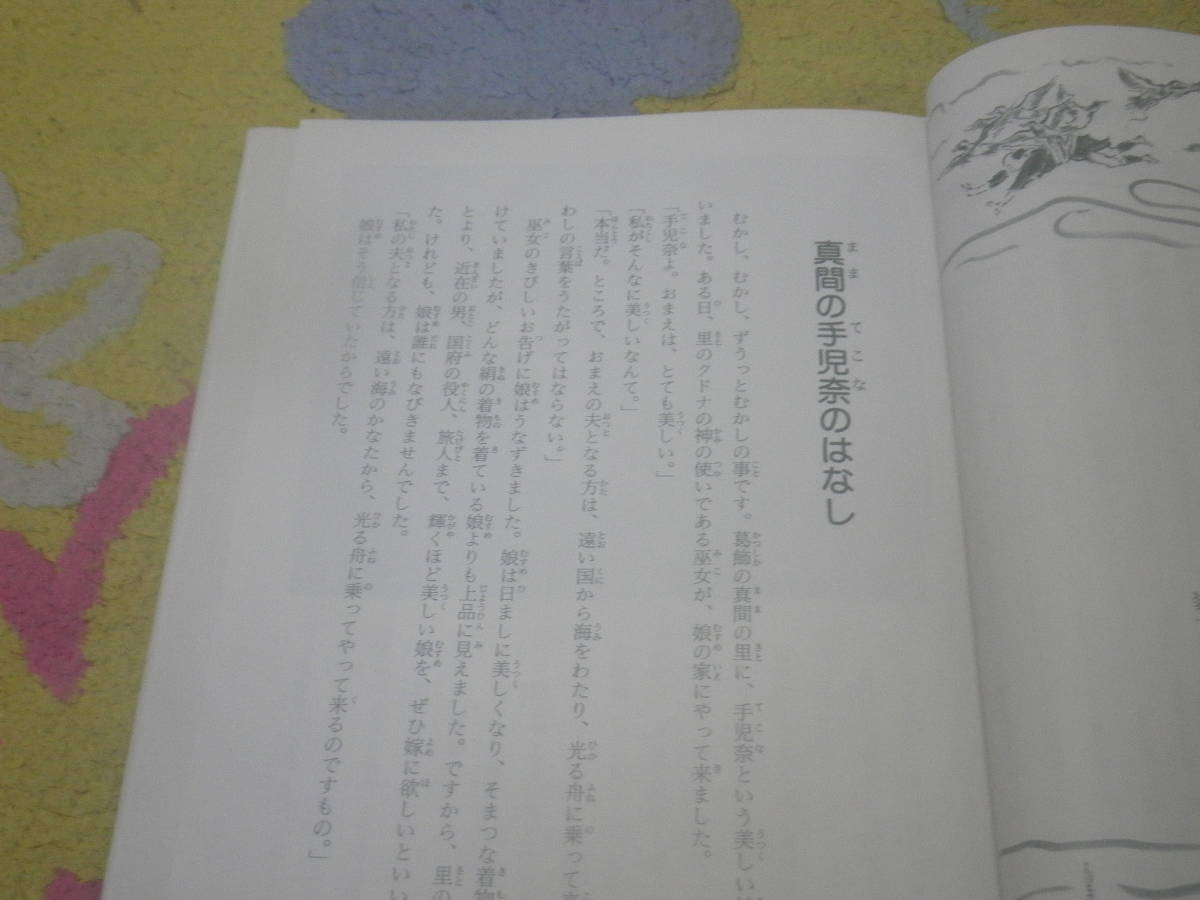 真間の手児奈のはなし
むかし、むかし、ずうっとむかしの事です。葛飾の真間の里に、手児奈という美しい
いました。ある日、里のクドナの神の使いである巫女が、娘の家にやって来ました。
「手児奈よ。おまえは、とても美しい。」
「私がそんなに美しいなんて。」
「本当だ。ところで、おまえの夫となる方は、遠い国から海をわたり、光る舟に乗って
わしの言葉をうたがってはならない。」
巫女のきびしいお告げに娘はうなずきました。娘は日ましに美しくなり、そまつな着物
けていましたが、どんな絹の着物を着ている娘よりも上品に見えました。ですから、里の
とより、近在の男、国府の役人、旅人まで、輝くほど美しい娘を、ぜひ嫁に欲しいといい
た。けれども、娘は誰にもなびきませんでした。
「私の夫となる方は、遠い海のかなたから、光る舟に乗ってやって来るのですもの。」
娘はそう信じていたからでした。